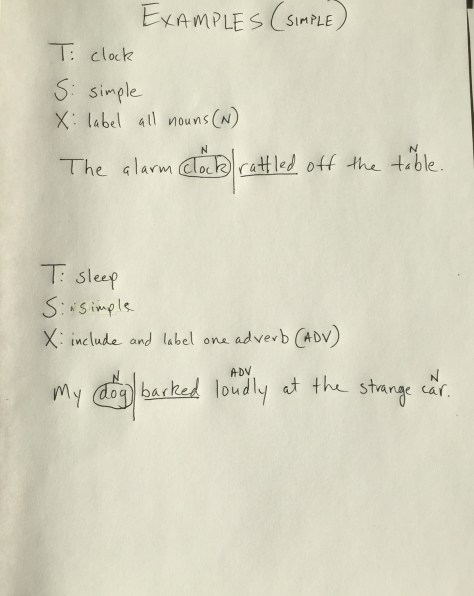 EXAMPLES (SIMPLE)
T: clock
S: simple
X: label all nouns (N)
N N
The alarm clock rattled off the table.
T: sleep
S: simple
X: include and label one adverb (ADV)
N ADV N
My dog barked loudly at the strange car.